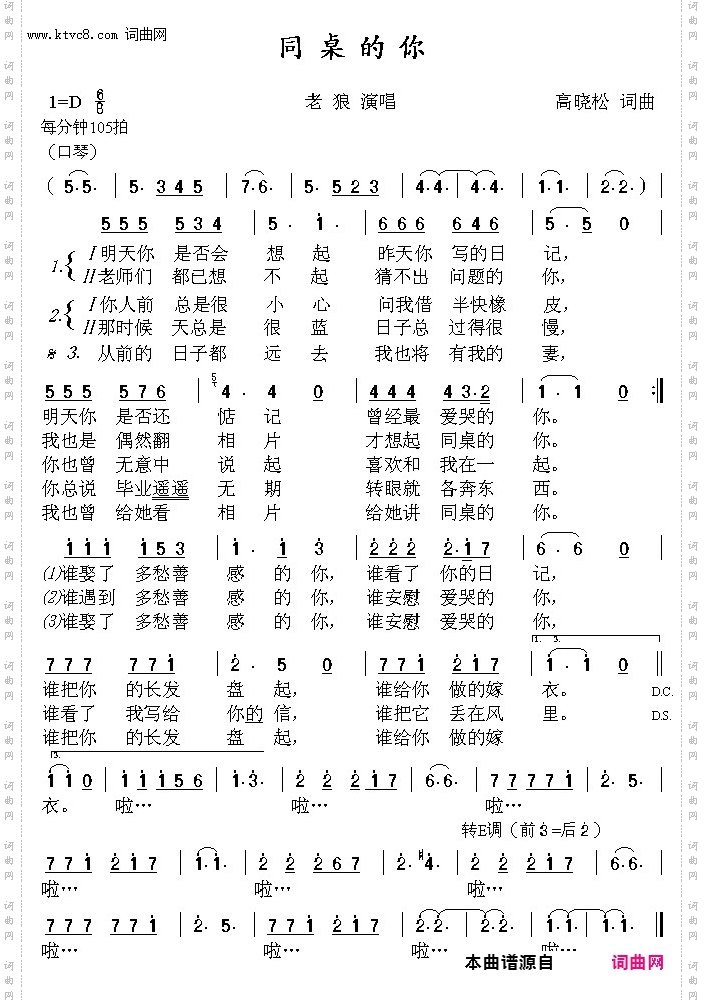 www.ktvc8.com 词曲网
同桌的你
1=D 6/8 老 狼 演唱 高晓松 词曲
每分钟105拍
（口琴）
( 5·5· | 5· 3 4 5 | 7·6· | 5· 5 2 3 | 4·4· | 4·4· | 1·1· | 2·2· )
5 5 5 5 3 4 | 5 · 1 · | 6 6 6 6 4 6 | 5 · 5 0
1. Ⅰ明天你 是否会 想 起 昨天你 写的日 记，
Ⅱ老师们 都已想 不 起 猜不出 问题的 你，
2. Ⅰ你人前 总是很 小 心 问我借 半快橡 皮，
Ⅱ那时候 天总是 很 蓝 日子总 过得很 慢，
3. 从前的 日子都 远 去 我也将 有我的 妻，
5 5 5 5 7 6 | 5 4 · 4 0 | 4 4 4 4 3·2 | 1 · 1 0 :‖
明天你 是否还 惦 记 曾经最 爱哭的 你。
我也是 偶然翻 相 片 才想起 同桌的 你。
你也曾 无意中 说 起 喜欢和 我在一 起。
你总说 毕业遥遥 无 期 转眼就 各奔东 西。
我也曾 给她看 相 片 给她讲 同桌的 你。
1 1 1 1 5 3 | 1 · 1 3 | 2 2 2 2·1 7 | 6 · 6 0
⑴谁娶了 多愁善 感 的 你， 谁看了 你的日 记，
⑵谁遇到 多愁善 感 的 你， 谁安慰 爱哭的 你，
⑶谁娶了 多愁善 感 的 你， 谁安慰 爱哭的 你，
1. 3.
7 7 7 7 7 1 | 2 · 5 0 | 7 7 7 2 1 7 | 1 · 1 0 ‖
谁把你 的长发 盘 起， 谁给你 做的嫁 衣。 D.C.
谁看了 我写给 你的 信， 谁把它 丢在风 里。 D.S.
谁把你 的长发 盘 起， 谁给你 做的嫁
3.
1 1 0 | 1 1 1 5 6 | 1·3· | 2 2 2 1 7 | 6·6· | 7 7 7 7 1 | 2· 5·
衣。 啦… 啦… 啦…
转E调（前3=后2）
7 7 1 2 1 7 | 1·1· | 2 2 2 6 7 | 2·#4· | 2 2 2 1 7 | 6·6·
啦… 啦… 啦…
7 7 7 7 7 1 | 2·5· | 7 7 7 2 1 7 | 2·2· | 2·2· | 1·1· | 1 ‖
啦… 啦… 啦… 啦…
本曲谱源自 词曲网
词曲网